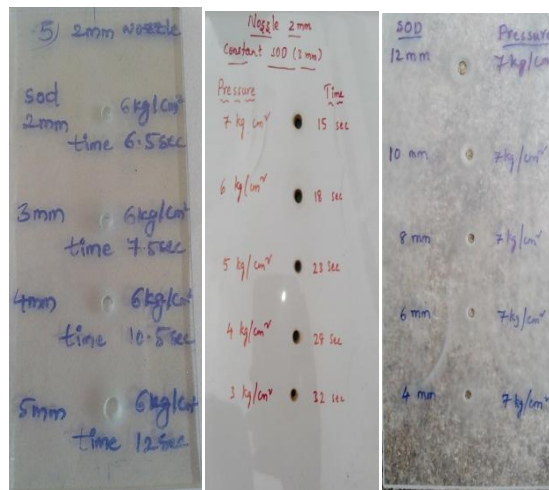 5) 2mm Nozzle
sod
2mm 6kg/cm²
time 6.5sec
3mm 6kg/cm²
time 7.5sec
4mm 6kg/cm²
time 10.5sec
5mm 6kg/cm²
time 12sec
Nozzle 2mm
Constant SOD (3mm)
Pressure Time
7 kg cm² 15 sec
6 kg/cm² 18 sec
5 kg/cm² 23 sec
4 kg/cm² 27 sec
3 kg/cm² 32 sec
SOD Pressure
12mm 7kg/cm²
10 mm 7kg/cm²
8 mm 7kg/cm²
6 mm 7kg/cm²
4 mm 7kg/cm²